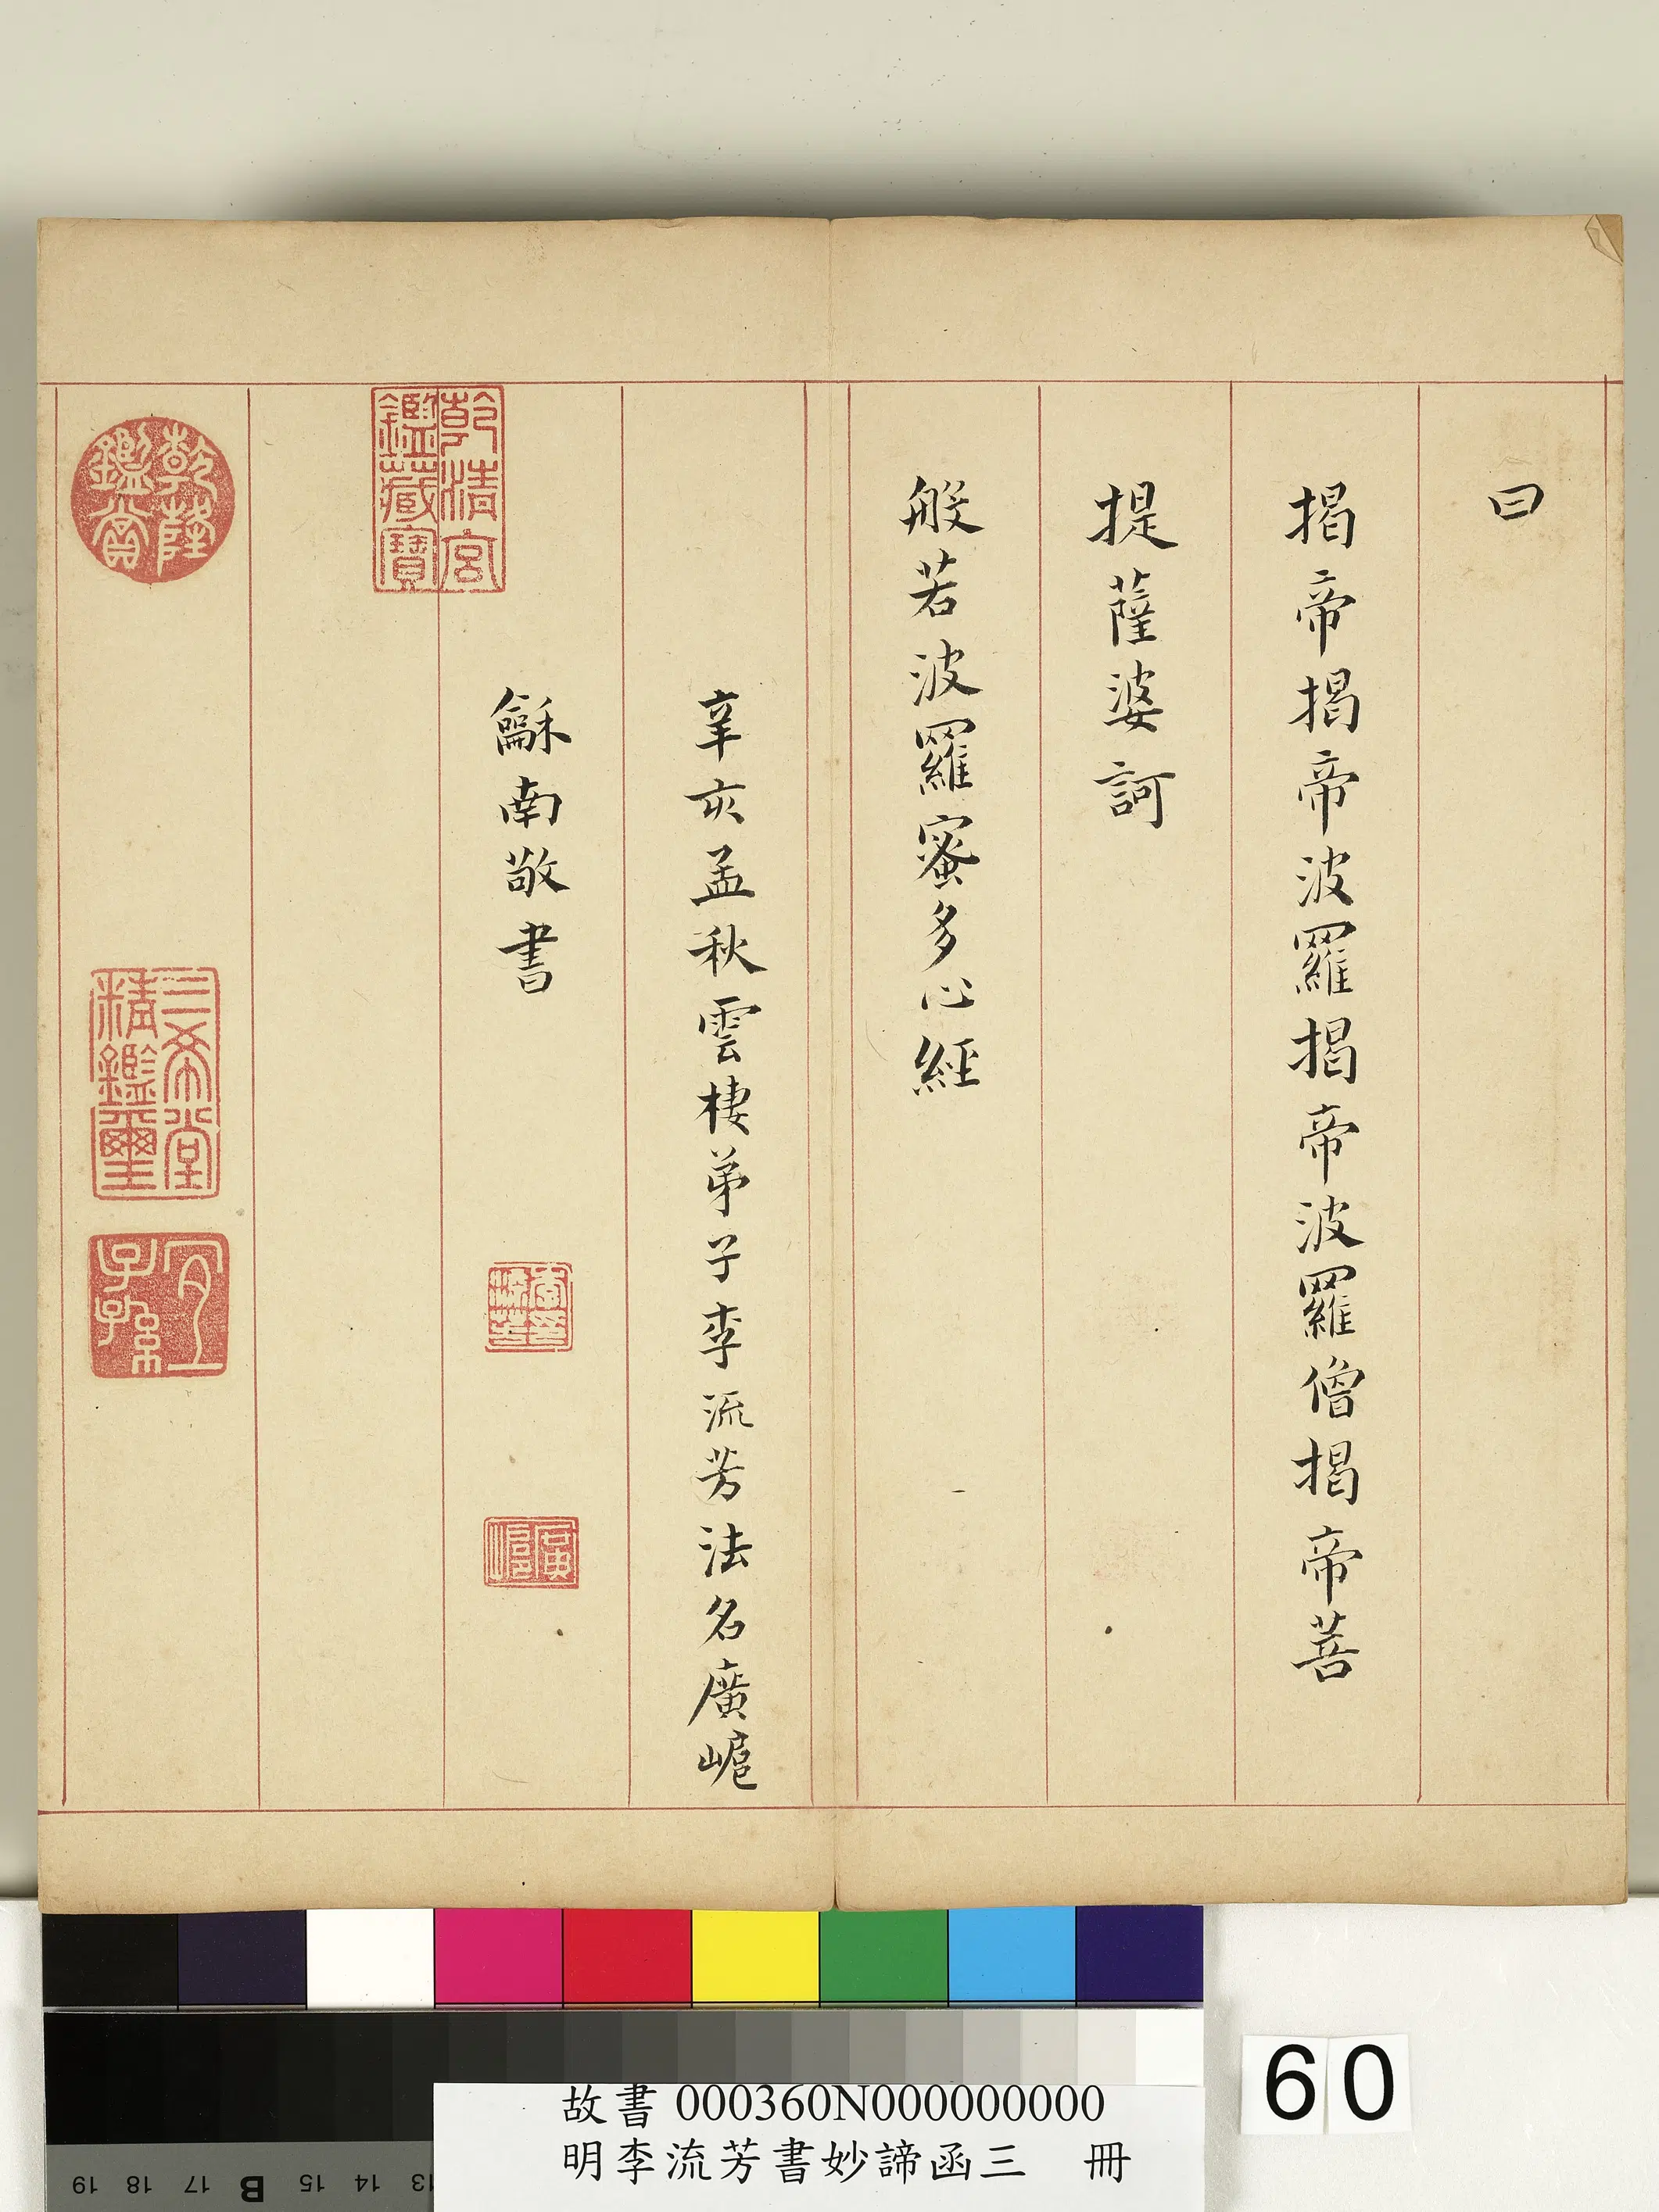 曰
揭帝揭帝波羅揭帝波羅僧揭帝菩
提薩婆訶
般若波羅蜜多心經
辛亥孟秋雲棲弟子李流芳法名廣𡹴
龢南敬書
李流芳印
乾清宮
鑑藏寶
乾隆
鑑賞
三希堂
精鑑璽
宜
子孫
60
故書 000360N000000000
明李流芳書妙諦函三 冊
19 18 17 B 15 14 13